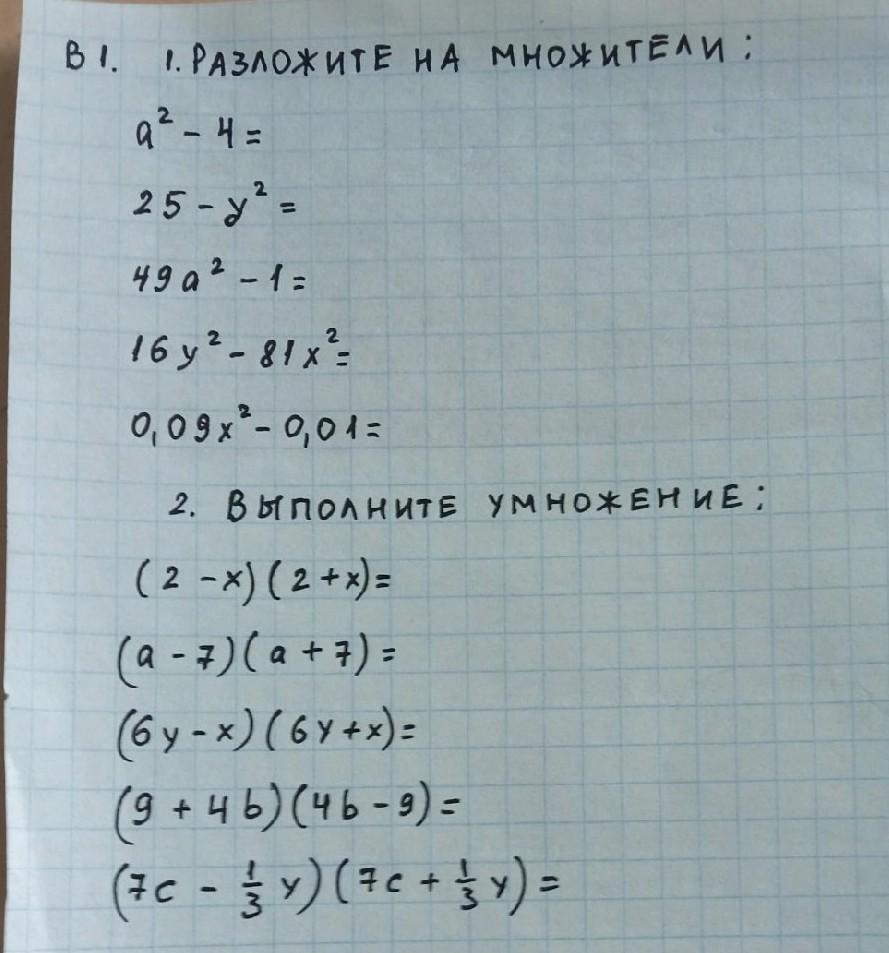 В 1. 1. РАЗЛОЖИТЕ НА МНОЖИТЕЛИ:
a² - 4 =
25 - y² =
49a² - 1 =
16y² - 81x² =
0,09x² - 0,01 =
2. ВЫПОЛНИТЕ УМНОЖЕНИЕ:
(2 - x)(2 + x) =
(a - 7)(a + 7) =
(6y - x)(6y + x) =
(9 + 4b)(4b - 9) =
(7c - 1/3 y)(7c + 1/3 y) =